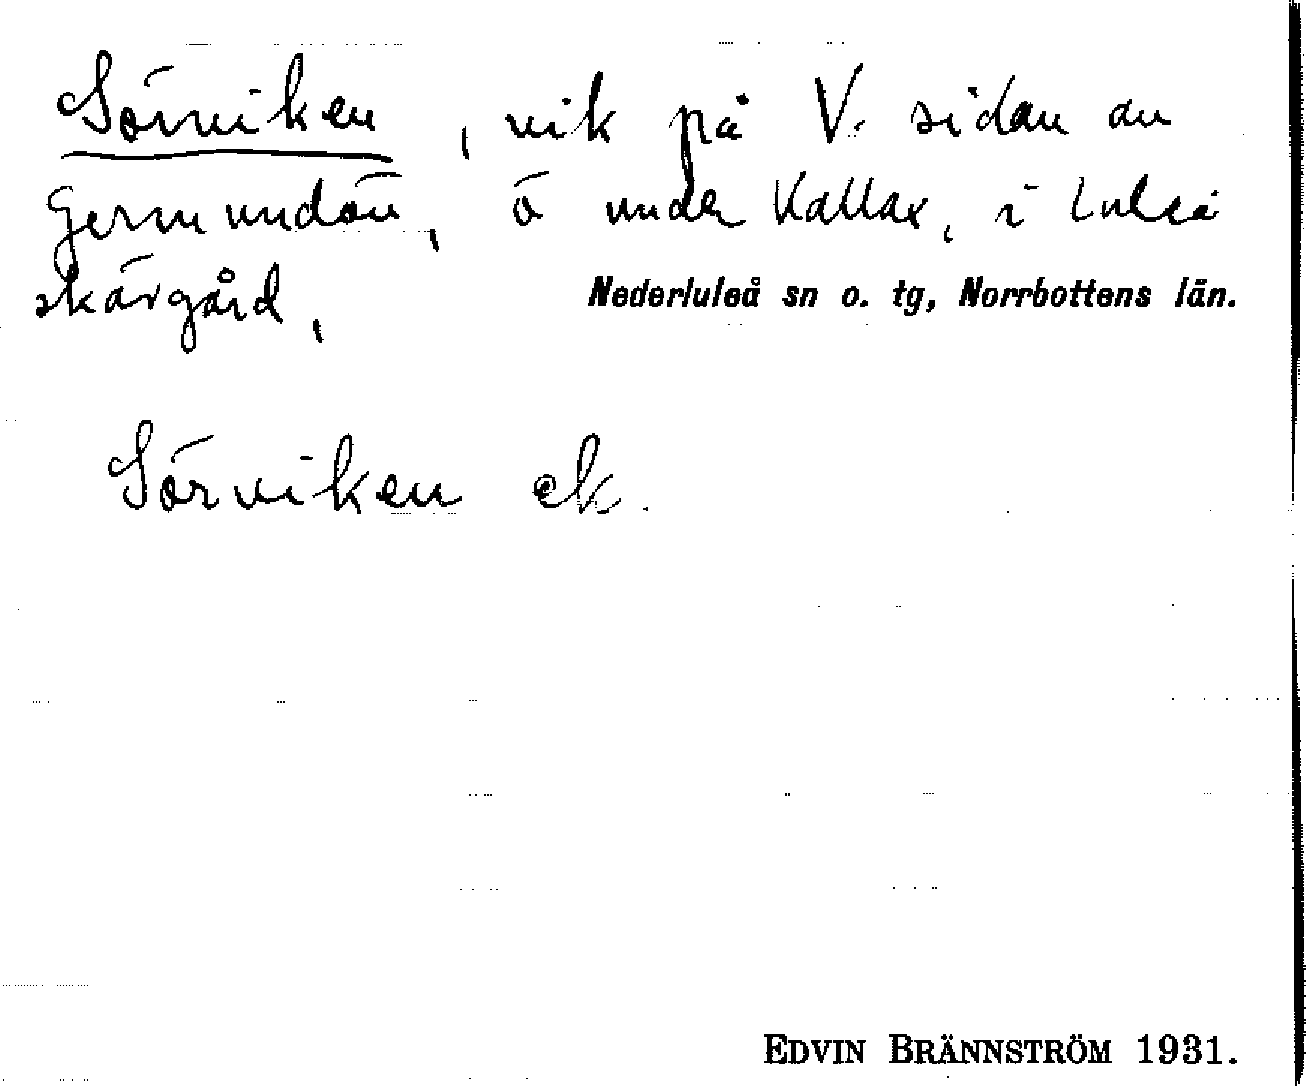 Sörviken, vik på V. sidan av
Germundön, ö under Kallax, i Luleå
skärgård,
Nederluleå sn o. tg, Norrbottens län.
Sörviken ek.
EDVIN BRÄNNSTRÖM 1931.